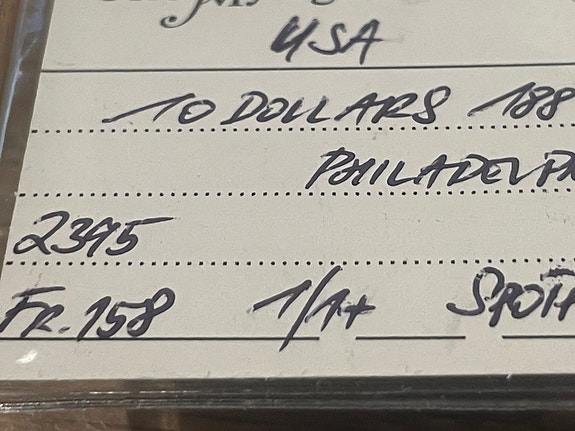 USA
10 DOLLARS 188
PHILADELPH
2395
FR. 158 1/1+ SPOTF